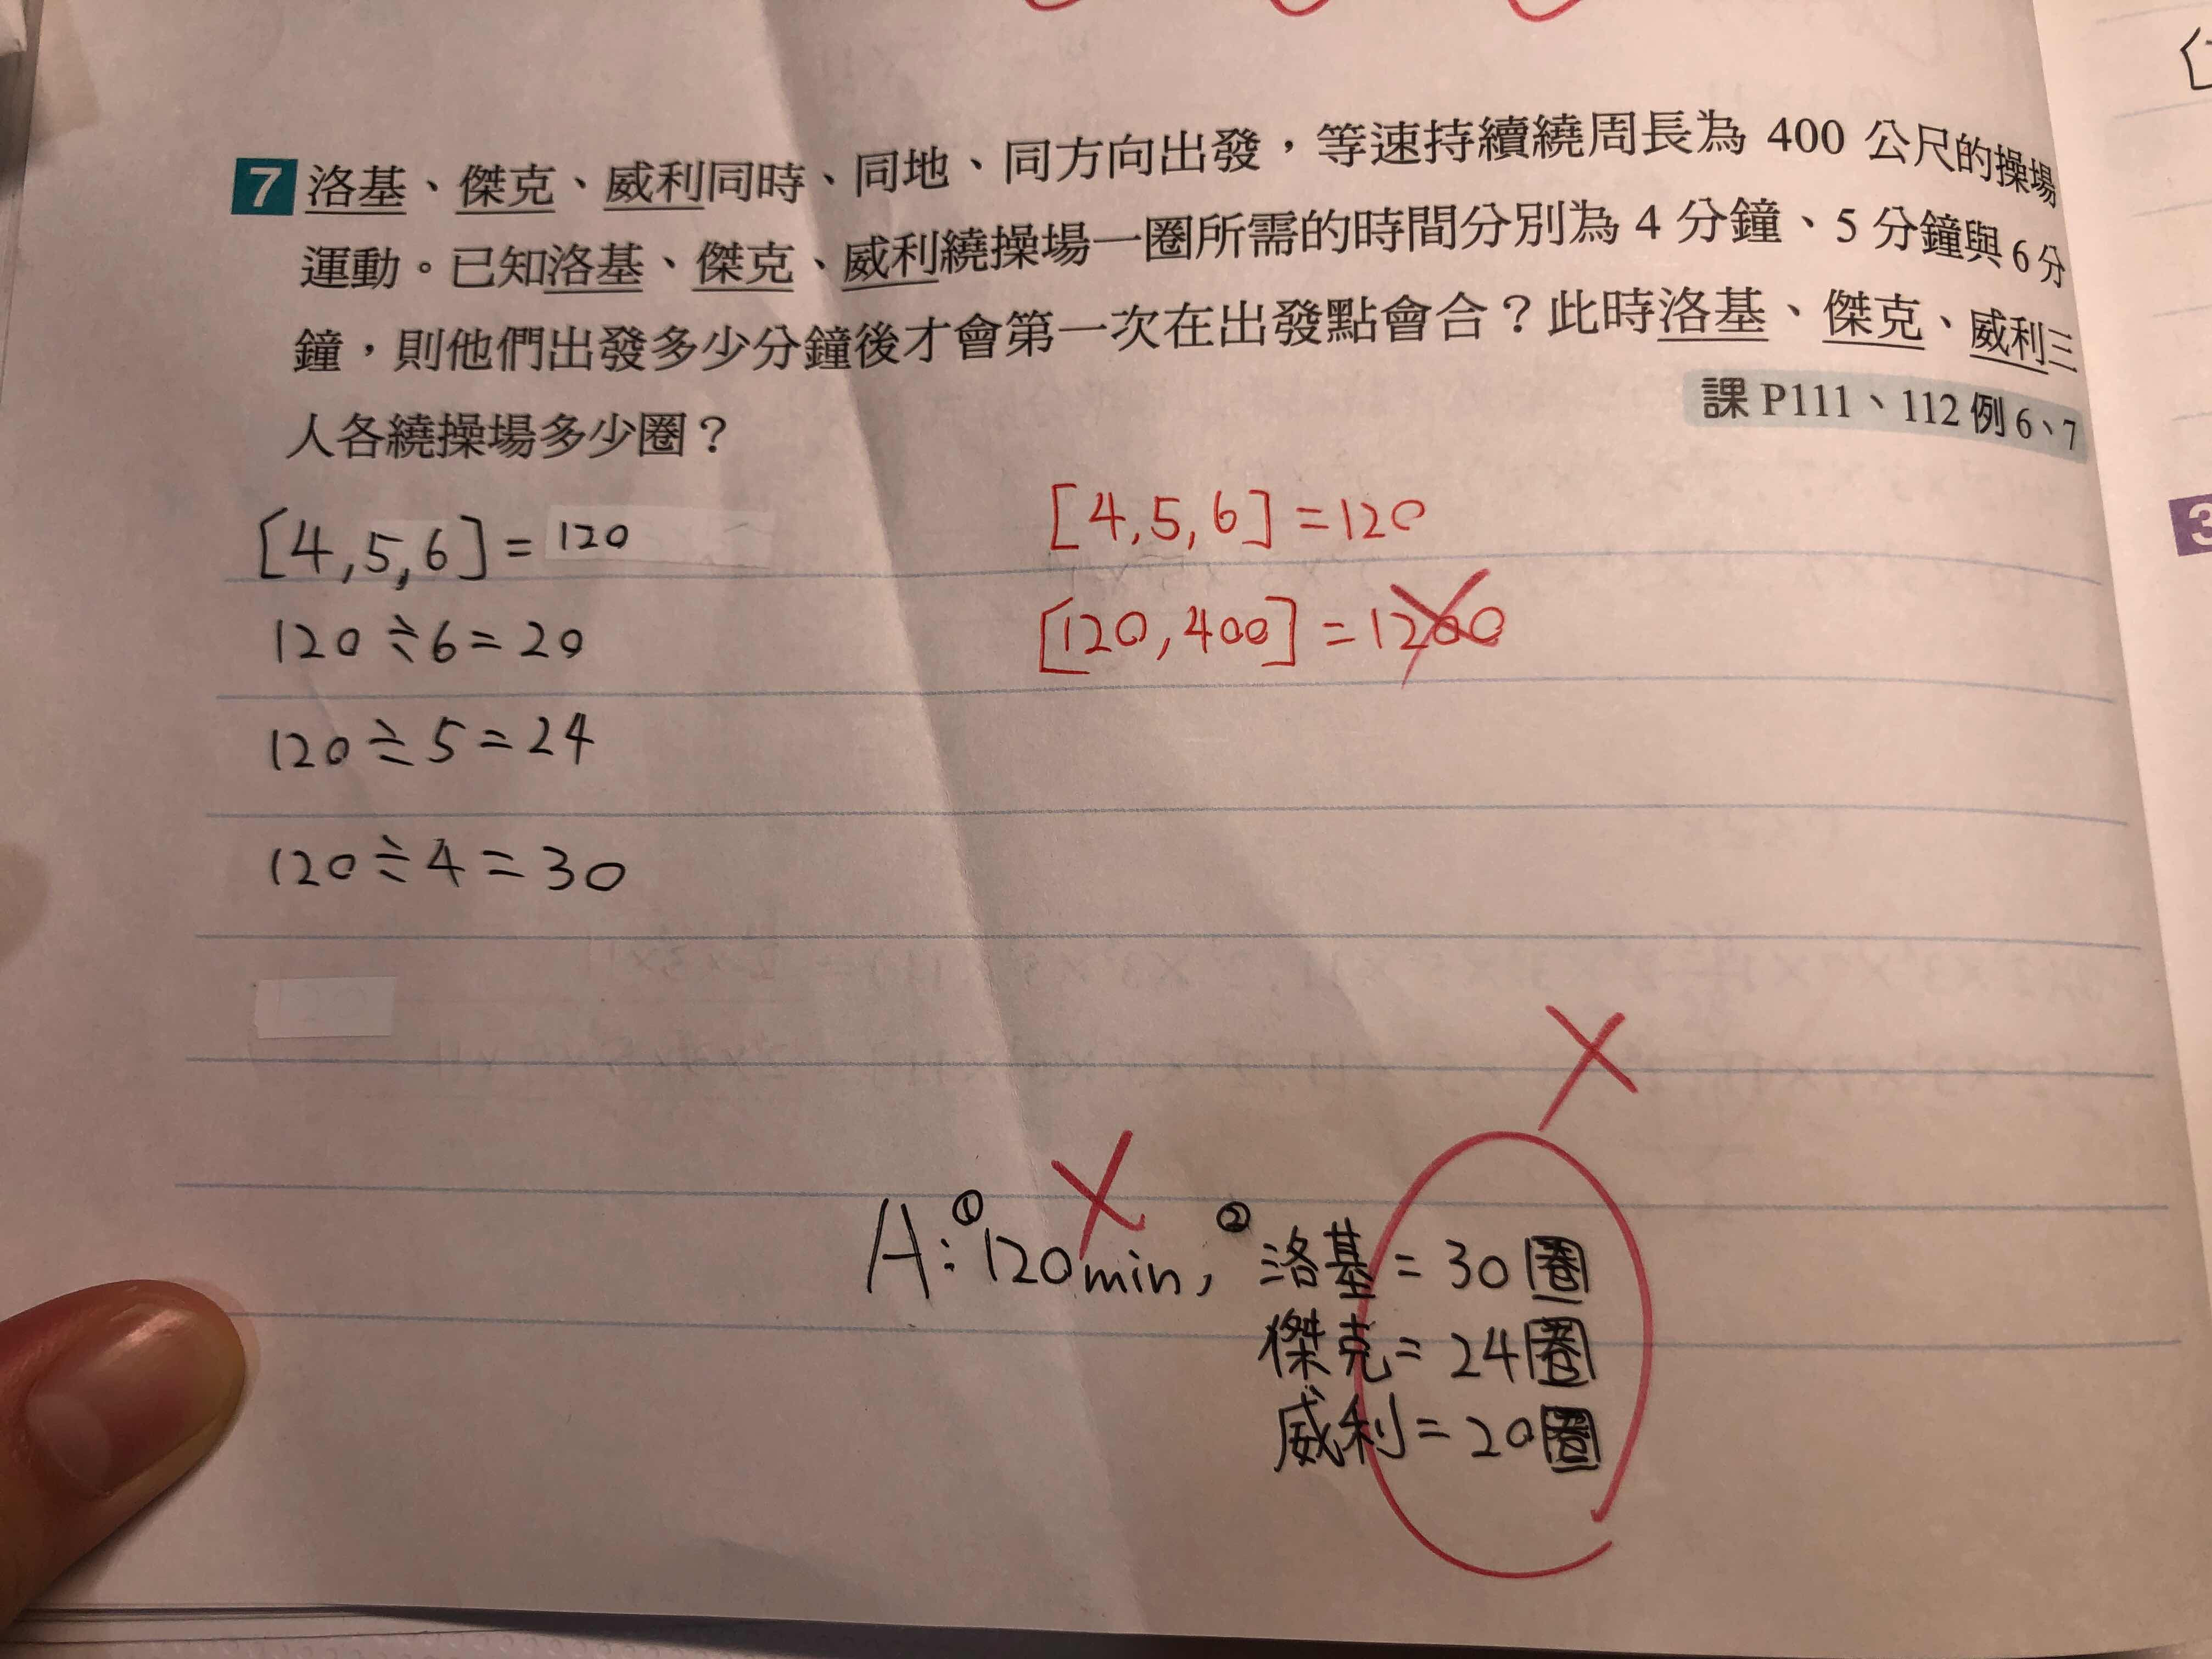 7 洛基、傑克、威利同時、同地、同方向出發，等速持續繞周長為 400 公尺的操場
運動。已知洛基、傑克、威利繞操場一圈所需的時間分別為 4 分鐘、5 分鐘與 6 分
鐘，則他們出發多少分鐘後才會第一次在出發點會合？此時洛基、傑克、威利三
人各繞操場多少圈？
課 P111、112 例 6、7
[4,5,6]=120
120÷6=20
120÷5=24
120÷4=30
[4,5,6]=120
[120,400]=1200
A:①120min, ②洛基=30圈
傑克=24圈
威利=20圈
3